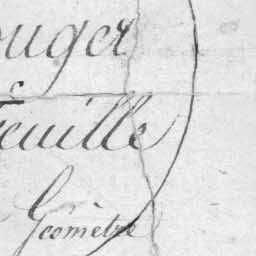 ouger
Feuille
Géomètre